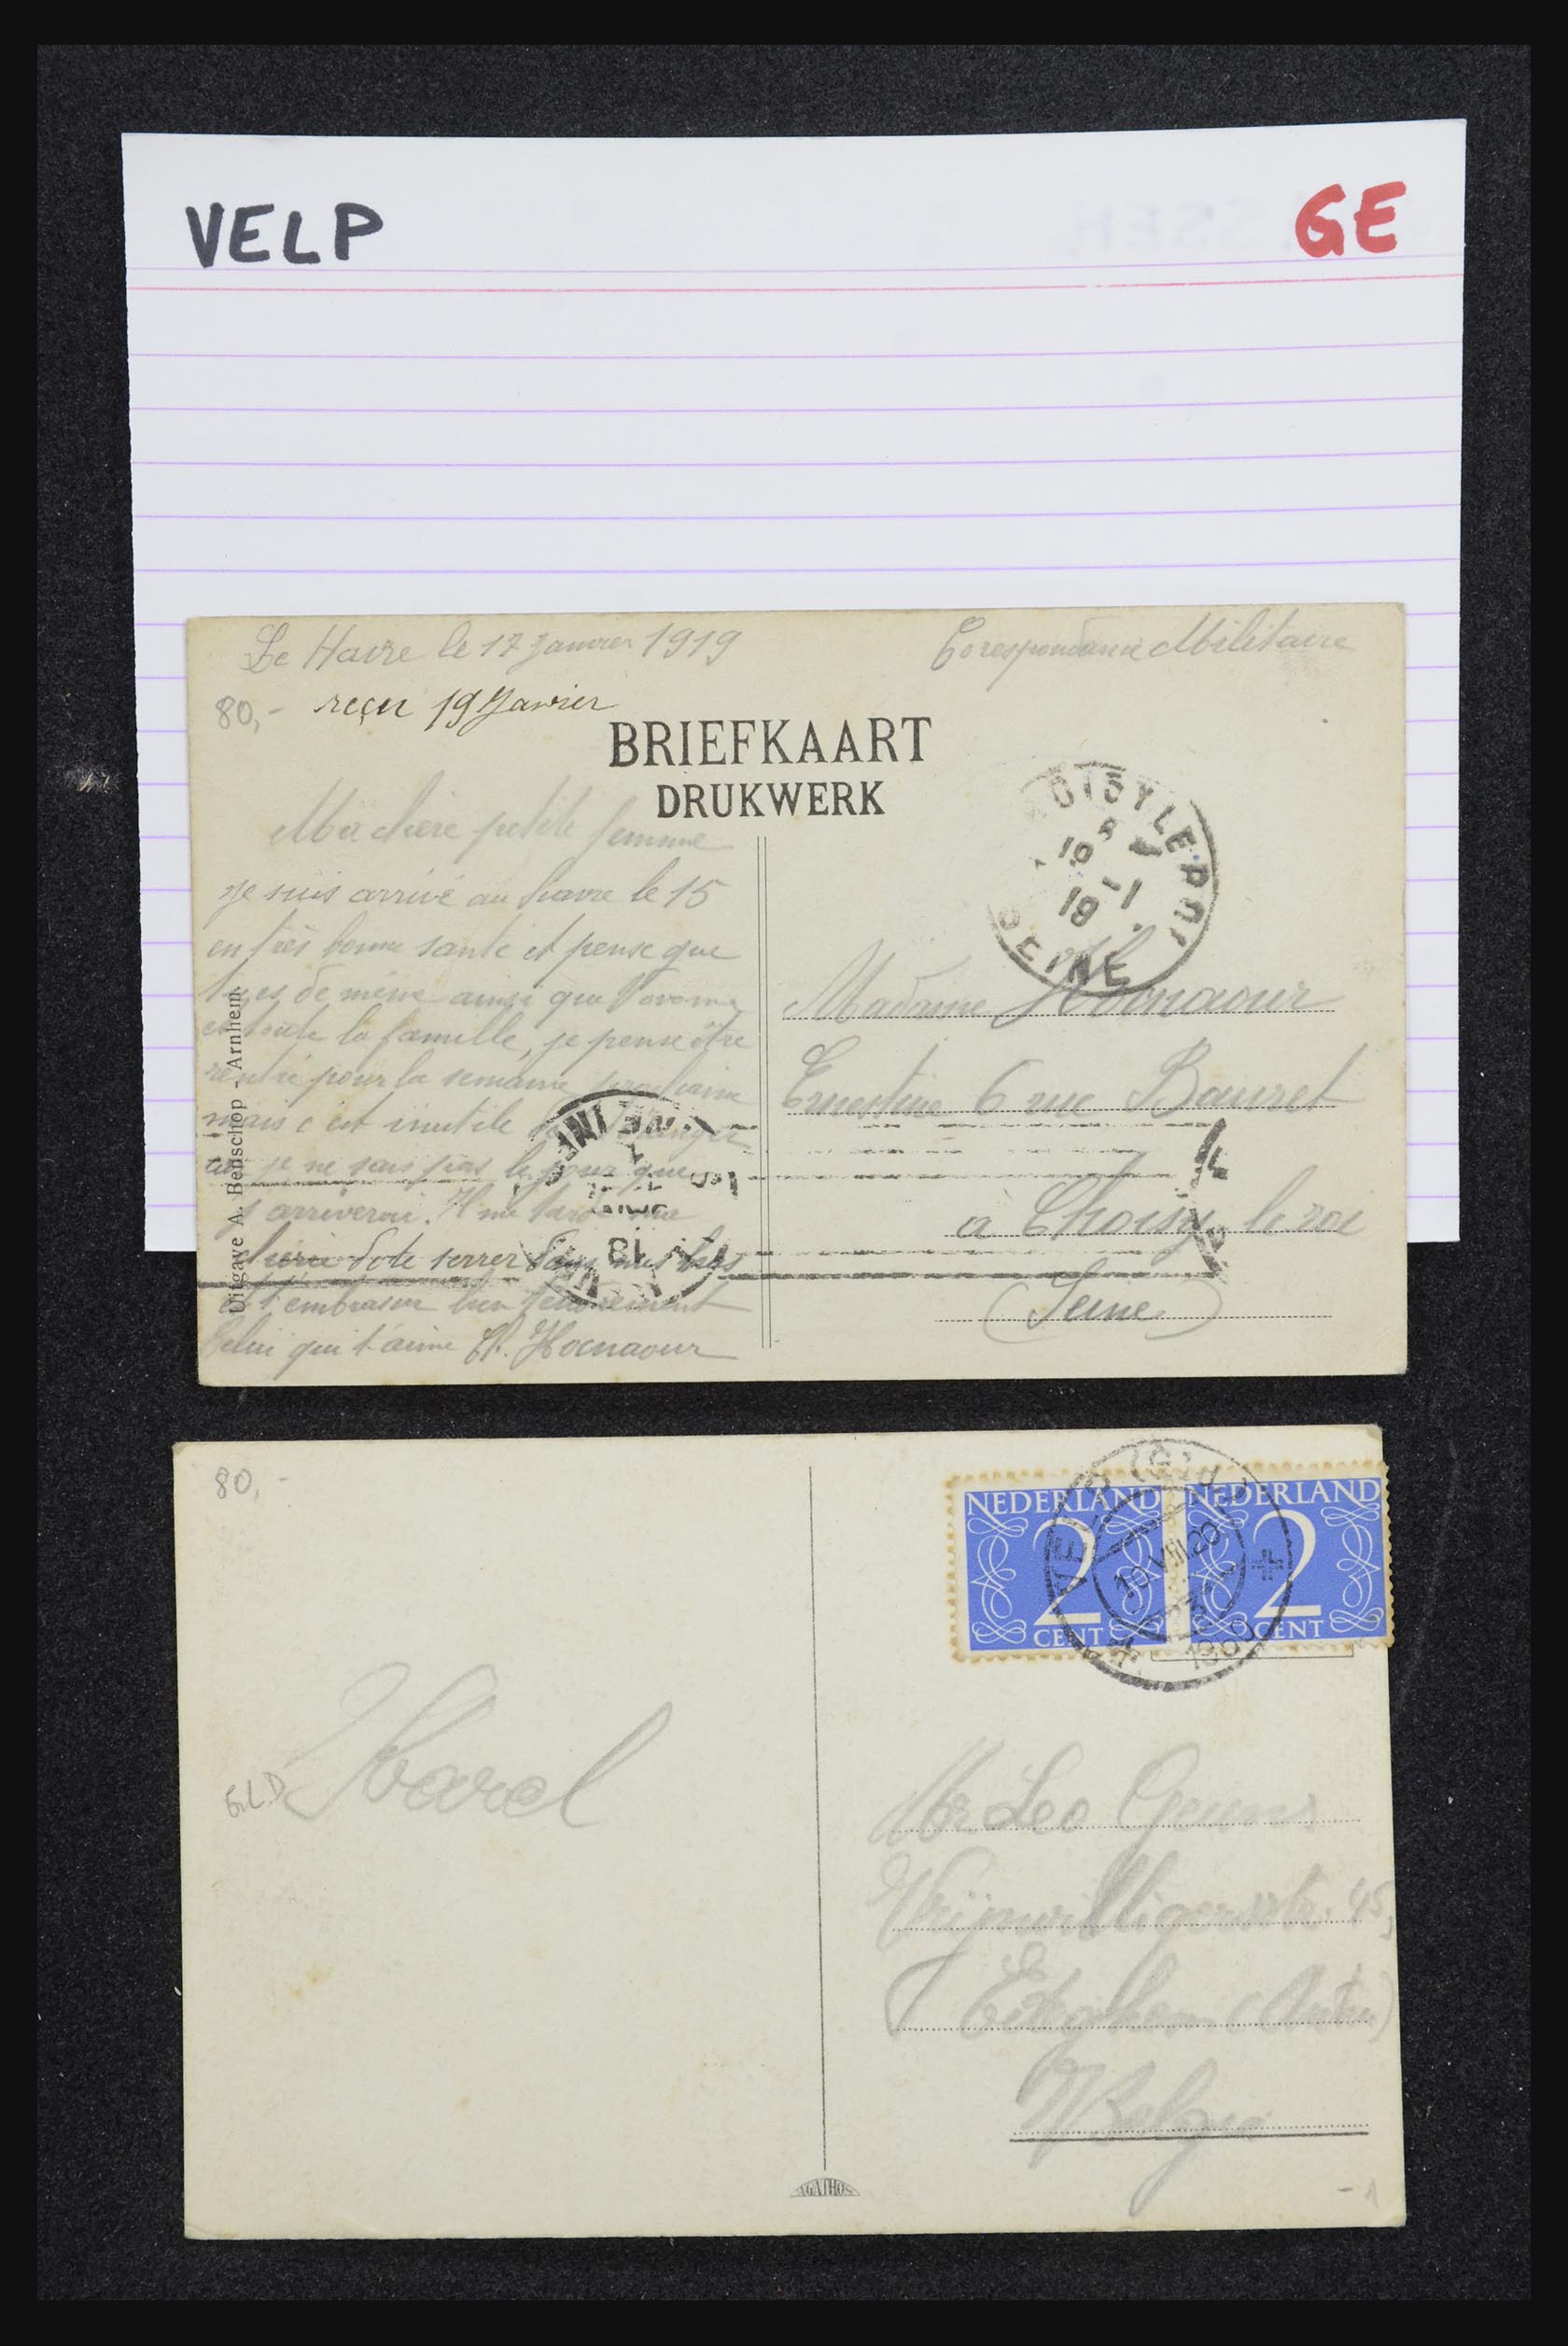 VELP
GE
Le Havre le 17 Janvier 1919
Corespondance Militaire
80,-
reçu 19 Janvier
BRIEFKAART
DRUKWERK
Ma chère petite femme
Je suis arrivé au havre le 15
en très bonne santé et pense que
tu es de même ainsi que
et toute la famille, je pense être
rentré pour la semaine prochaine
mais c'est inutile
car je ne sais pas le jour que
j'arriverai. Il me tarde
de te serrer dans mes bras
et t'embrasser bien tendrement
Celui qui t'aime H. Hocnaour
Uitgave A. Benschop - Arnhem
OISY LE ROI
19 -1
19
SEINE
Madame Hocnaour
Ernestine 6 rue Bauret
à Choisy le roi
(Seine)
80,-
NEDERLAND
2
CENT
NEDERLAND
2
CENT
VELP (Gld)
10 VIII 20
Karel
GLD
Mr Leo Geuns
Vrijwilligersstr. 45,
Belgie
AGATHOS
-1